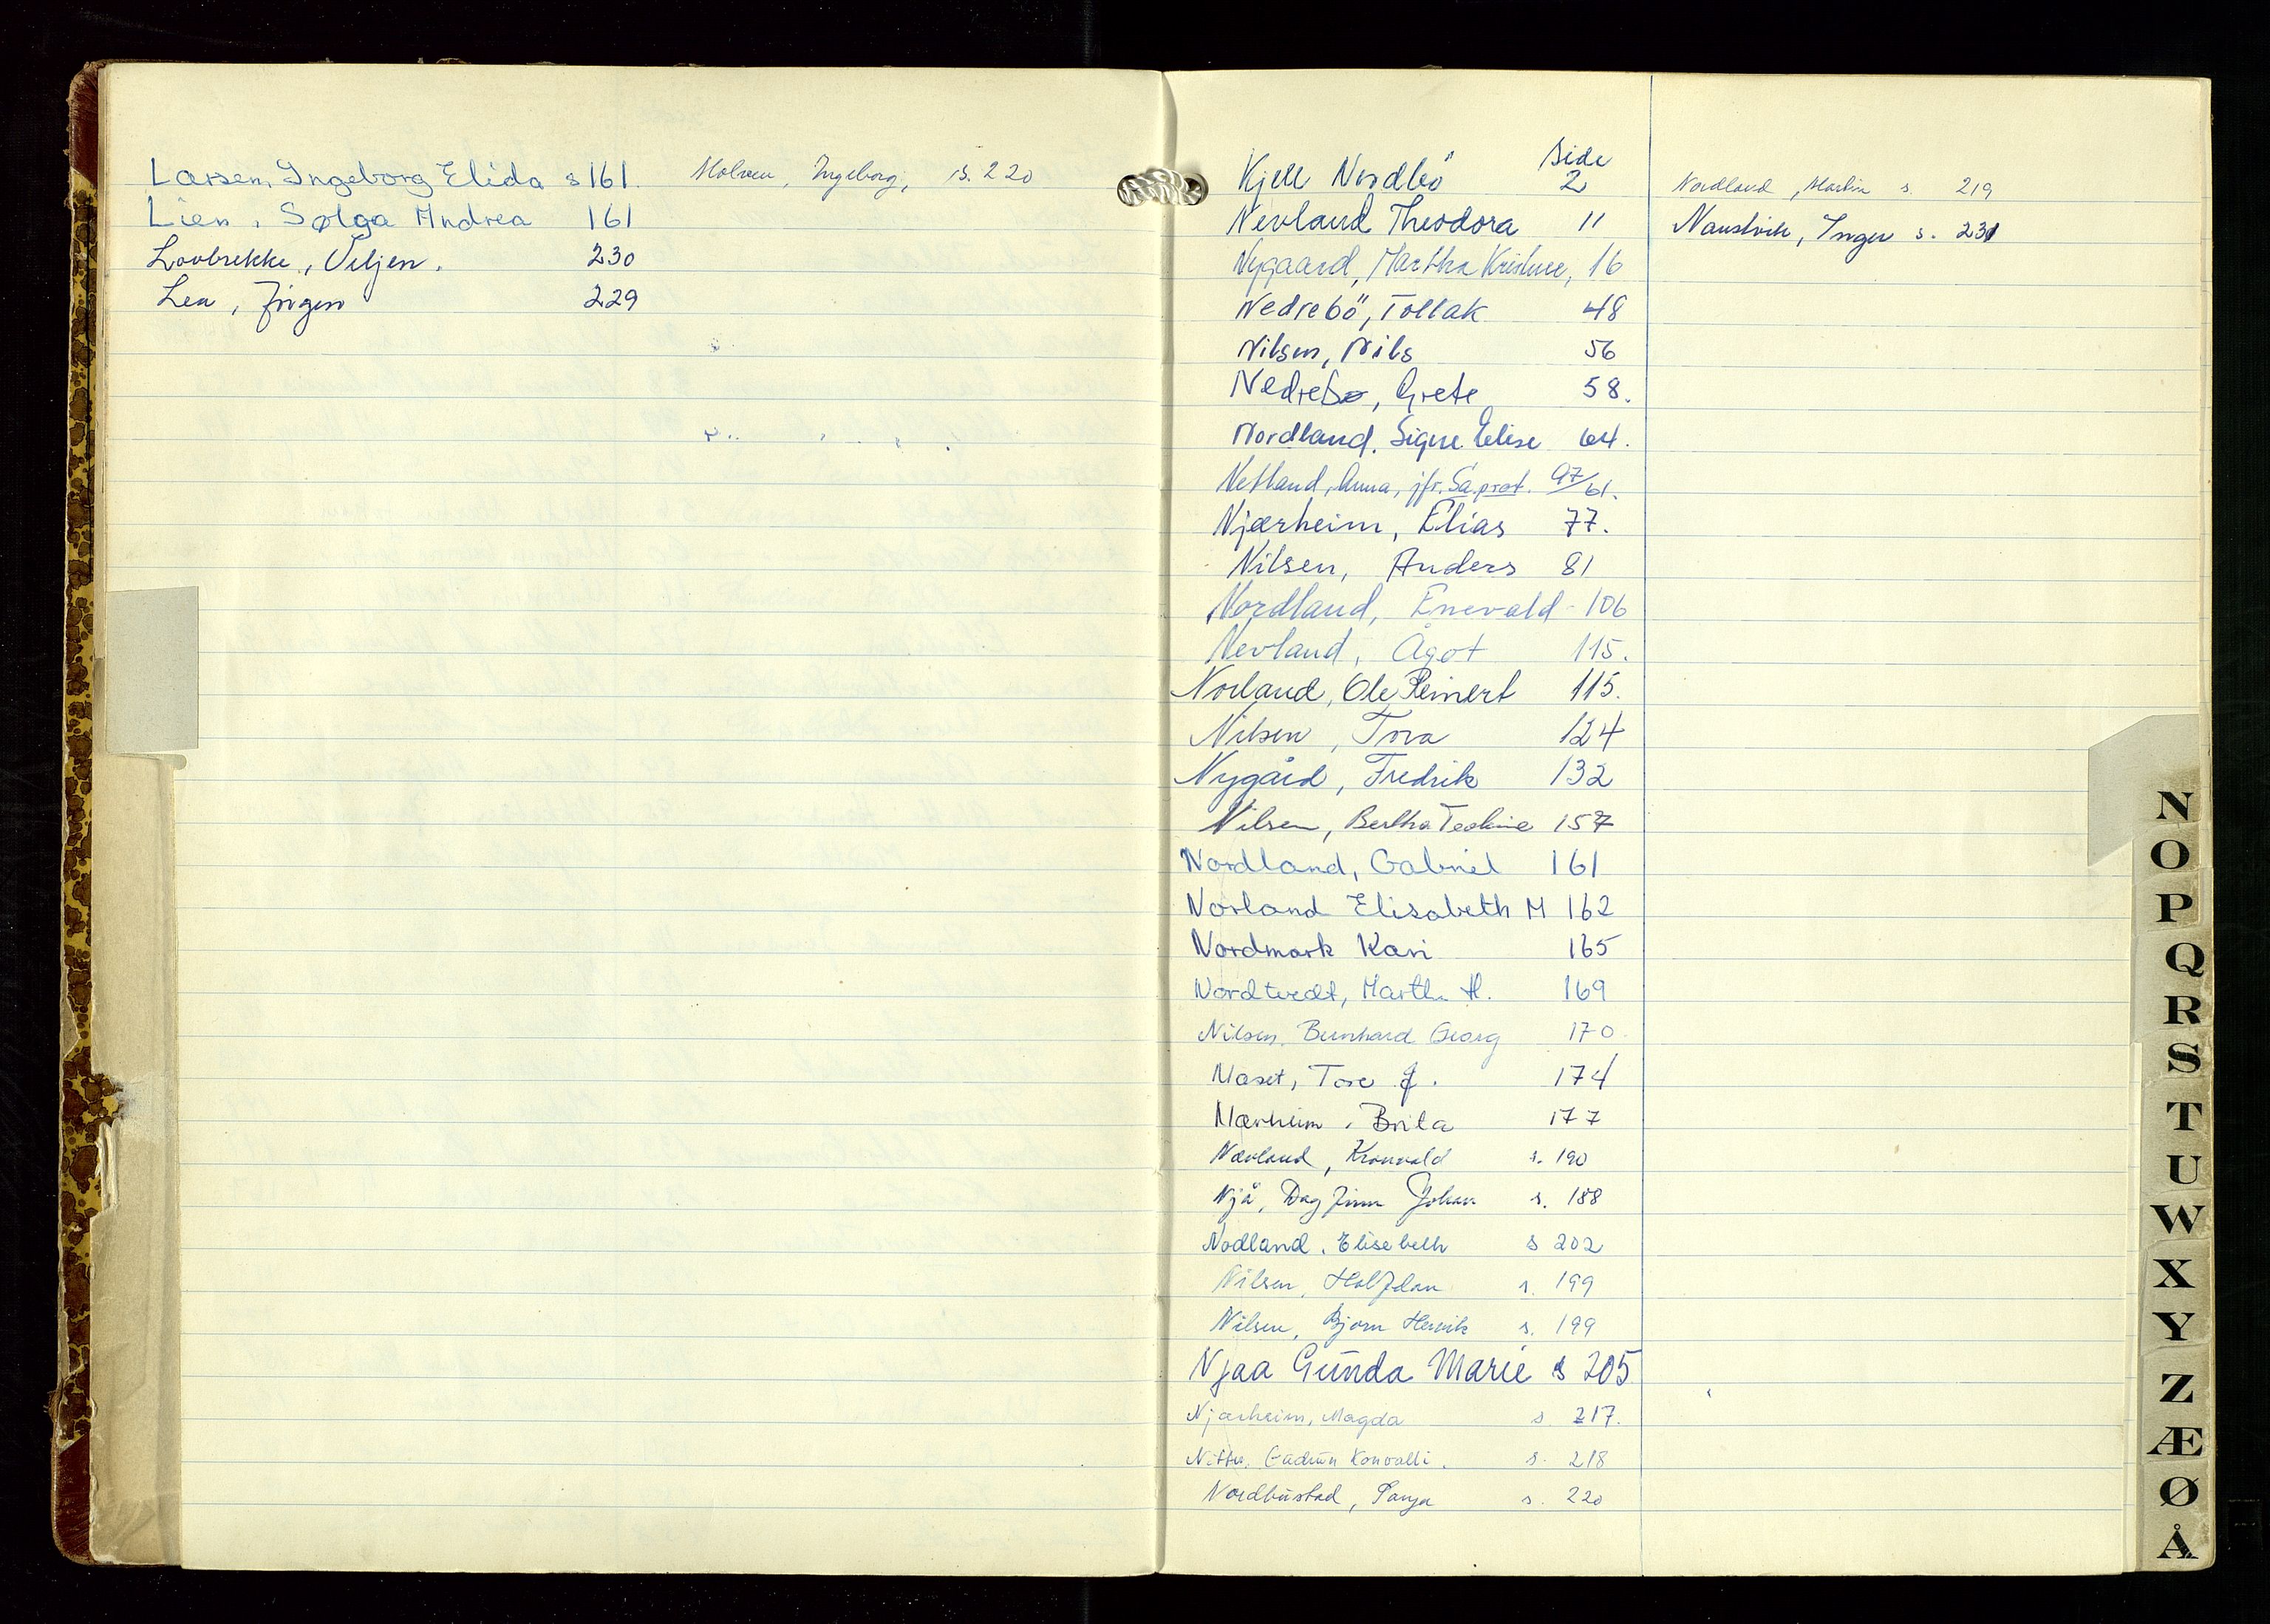 Larsen, Ingeborg Elida s 161.
Lien, Sølga Andrea 161
Lovbrekke, Viljen. 230
Lea, Jörgen 229
Molven, Ingeborg, s. 220
Side
Kjell Nordbö 2
Nevland Theodora 11
Nygaard, Martha Kristine, 16
Nedrebö, Tollak 48
Nilsen, Nils 56
Nedrebø, Grete 58.
Nordland, Signe Elise 64.
Netland, Anna, jfr. Sa.prot. 97/61.
Njærheim, Elias 77.
Nilsen, Anders 81
Nordland, Enevald - 106
Nevland, Ågot 115.
Norland, Ole Reinert 115.
Nilsen, Tora 124
Nygård, Fredrik 132
Nilsen, Bertha Teoline 157
Nordland, Gabriel 161
Norland Elisabeth M 162
Nordmark Kari 165
Nordtvedt, Martha H. 169
Nilsen, Bernhard Georg 170
Naset, Tore J. 174
Nærheim, Brita 177
Nævland, Kronvald s. 190
Njå, Dag Finn Johan s. 188
Nodland, Elisebeth s 202
Nilsen, Halfdan s. 199
Nilsen, Bjørn Henrik s. 199
Njaa Gunda Marie s 205
Njærheim, Magda s 217.
Gudrun Konvalli. s. 218
Nordbustad, Tanja s. 220
Nordland, Martin s. 219
Naustvik, Inger s. 231
N
O
P
Q
R
S
T
U
W
X
Y
Z
Æ
Ø
Å